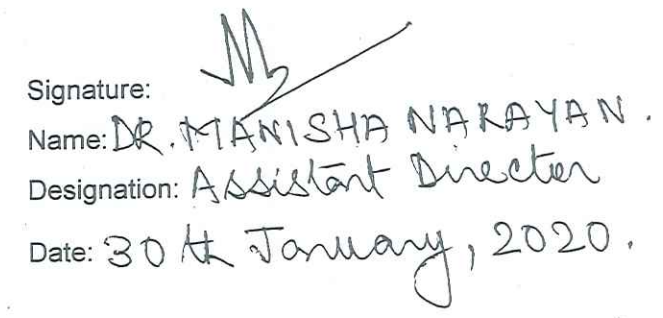 Signature:
Name: DR. MANISHA NARAYAN.
Designation: Assistant Director
Date: 30th January, 2020.